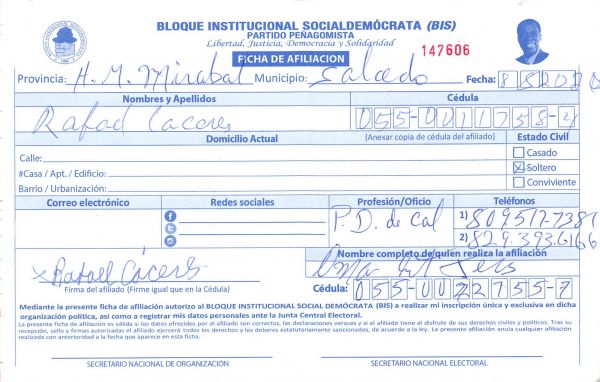 BLOQUE INSTITUCIONAL SOCIALDEMÓCRATA (BIS)
PARTIDO PEÑAGOMISTA
Libertad, Justicia, Democracia y Solidaridad
FICHA DE AFILIACION
147606
Provincia: H. M. Mirabal Municipio: Salcedo Fecha:
Nombres y Apellidos Cédula
Rafael Caceres 055-0011758-4
Domicilio Actual (Anexar copia de cédula del afiliado) Estado Civil
Calle: Casado
#Casa / Apt. / Edificio: Soltero
Barrio / Urbanización: Conviviente
Correo electrónico Redes sociales Profesión/Oficio Teléfonos
P.D. de Cal 1) 809 517-7387
2) 829.393.6166
Nombre completo de quien realiza la afiliación
x Rafael Cáceres
Firma del afiliado (Firme igual que en la Cédula) Cédula: 055-0022755-7
Mediante la presente ficha de afiliación autorizo al BLOQUE INSTITUCIONAL SOCIAL DEMÓCRATA (BIS) a realizar mi inscripción única y exclusiva en dicha
organización política, así como a registrar mis datos personales ante la Junta Central Electoral.
La presente ficha de afiliación es válida si los datos ofrecidos por el afiliado son correctos, las declaraciones veraces y si el afiliado tiene el disfrute de sus derechos civiles y políticos. Tras su
recepción, sello y firmas autorizadas el afiliado ejercerá todos los derechos y los deberes estatutariamente sancionados, de acuerdo a la ley. La presente afiliación anula cualquier afiliación
realizada con anterioridad a la fecha que aparece en esta ficha.
SECRETARIO NACIONAL DE ORGANIZACIÓN SECRETARIO NACIONAL ELECTORAL